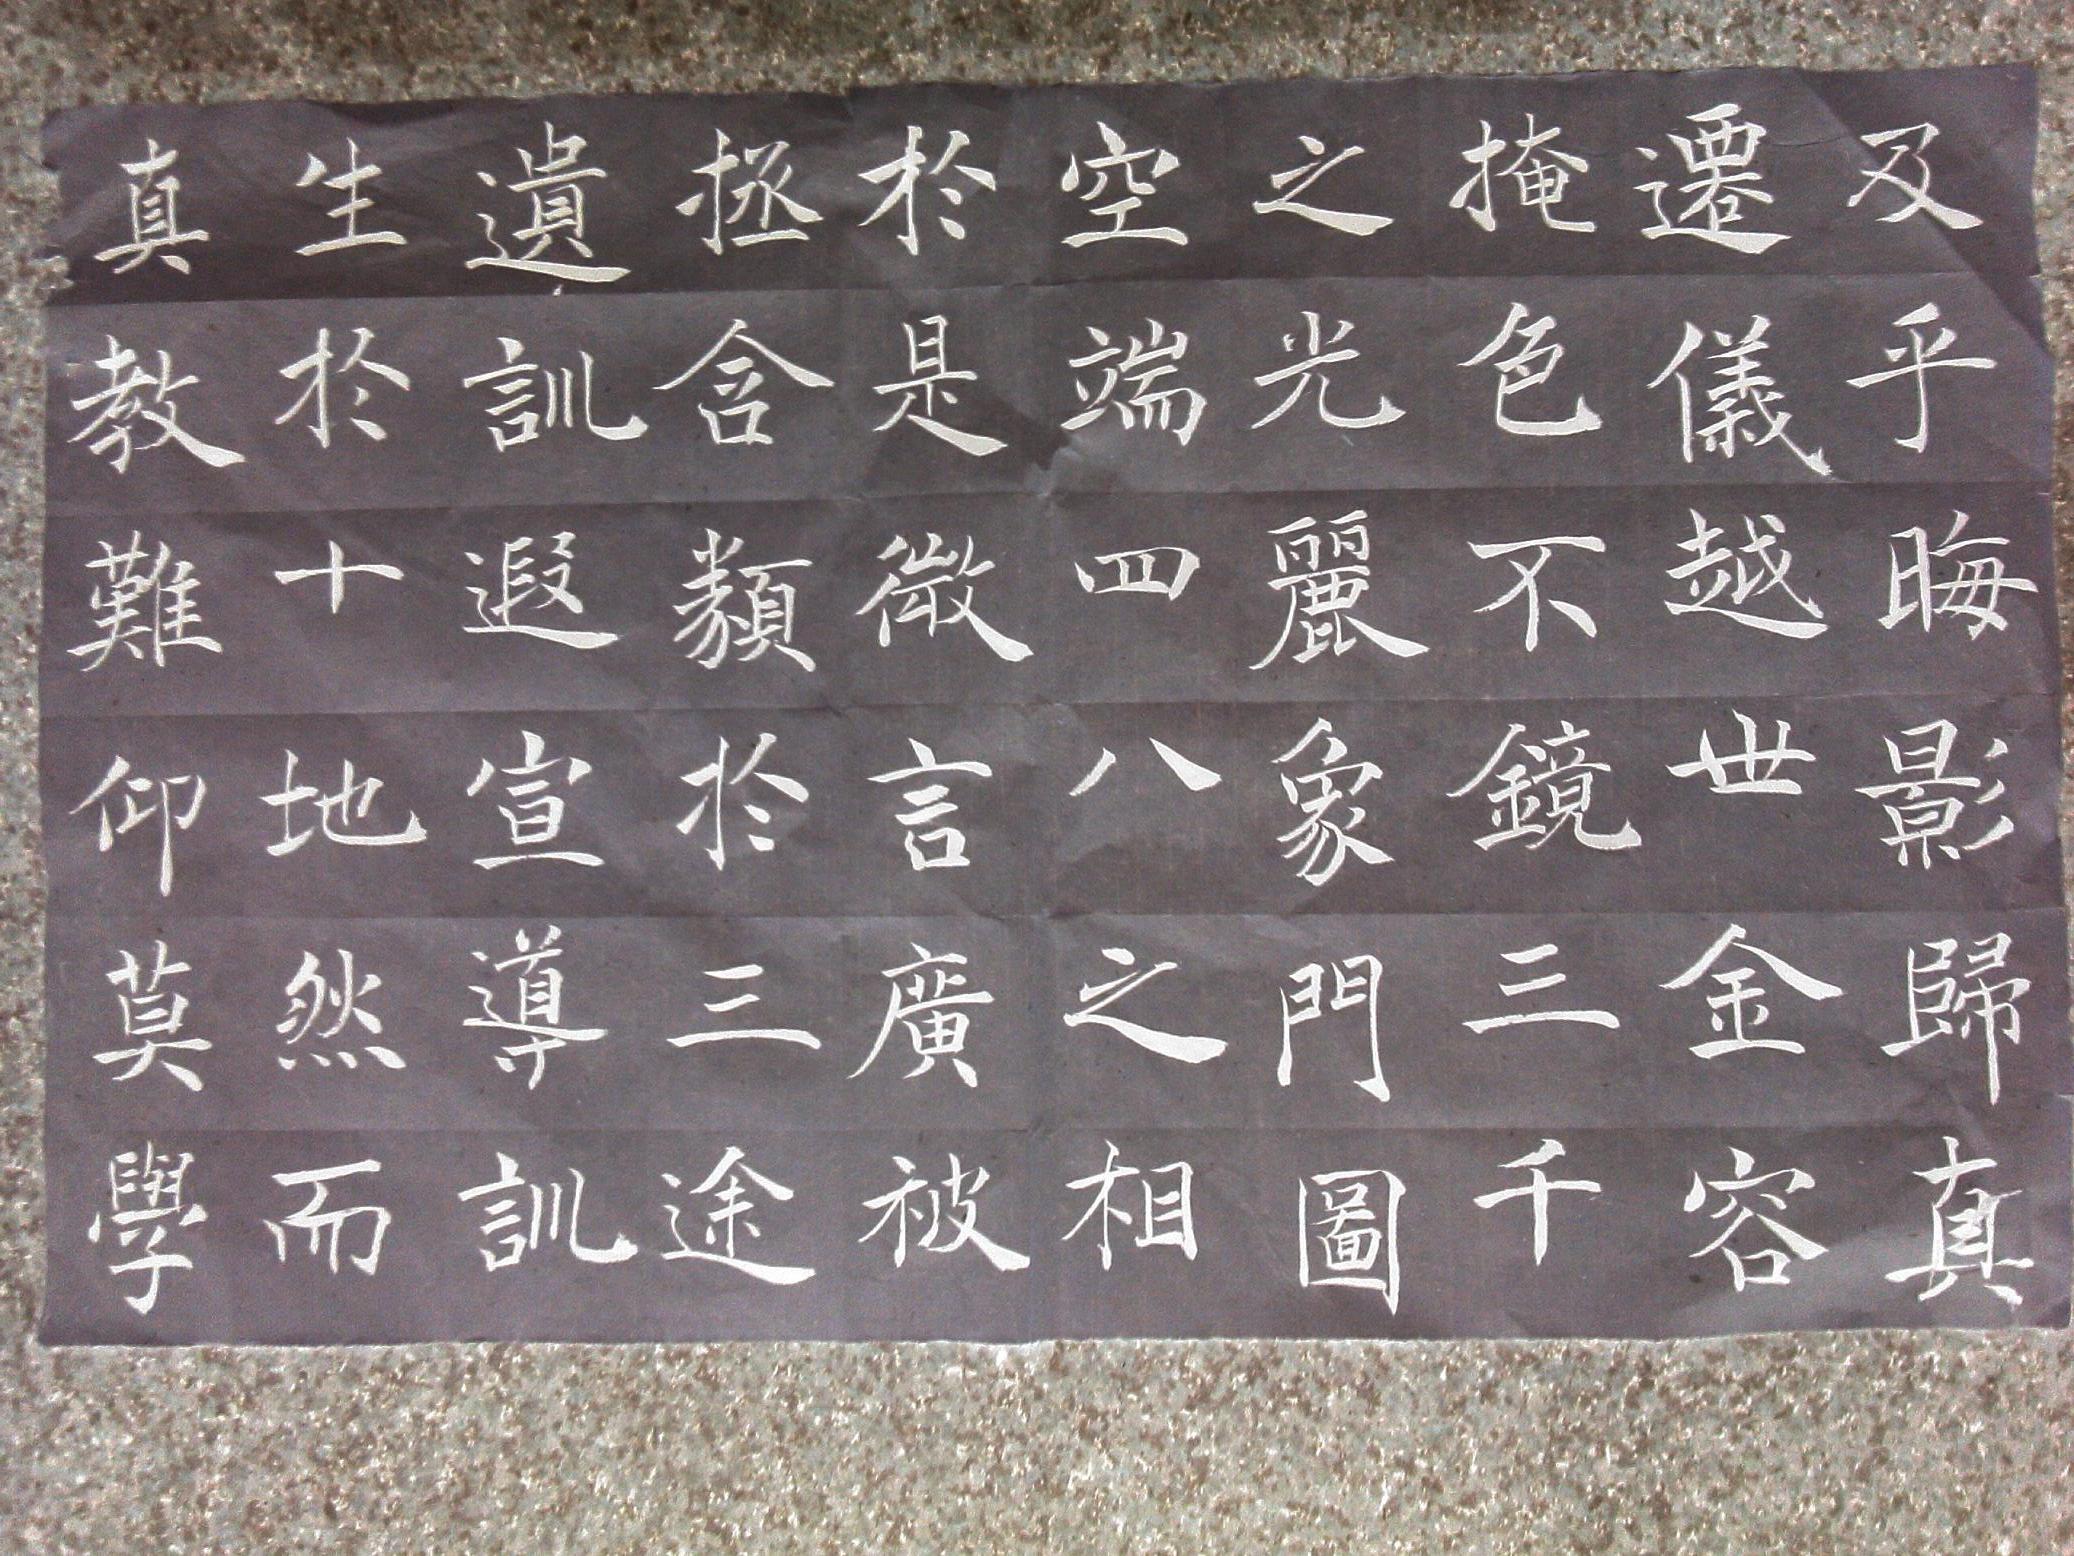 及乎晦影歸真
遷儀越世金容
掩色不鏡三千
之光麗象門圖
空端四八之相
於是微言廣被
拯含類於三途
遺訓遐宣導訓
生於十地然而
真教難仰莫學